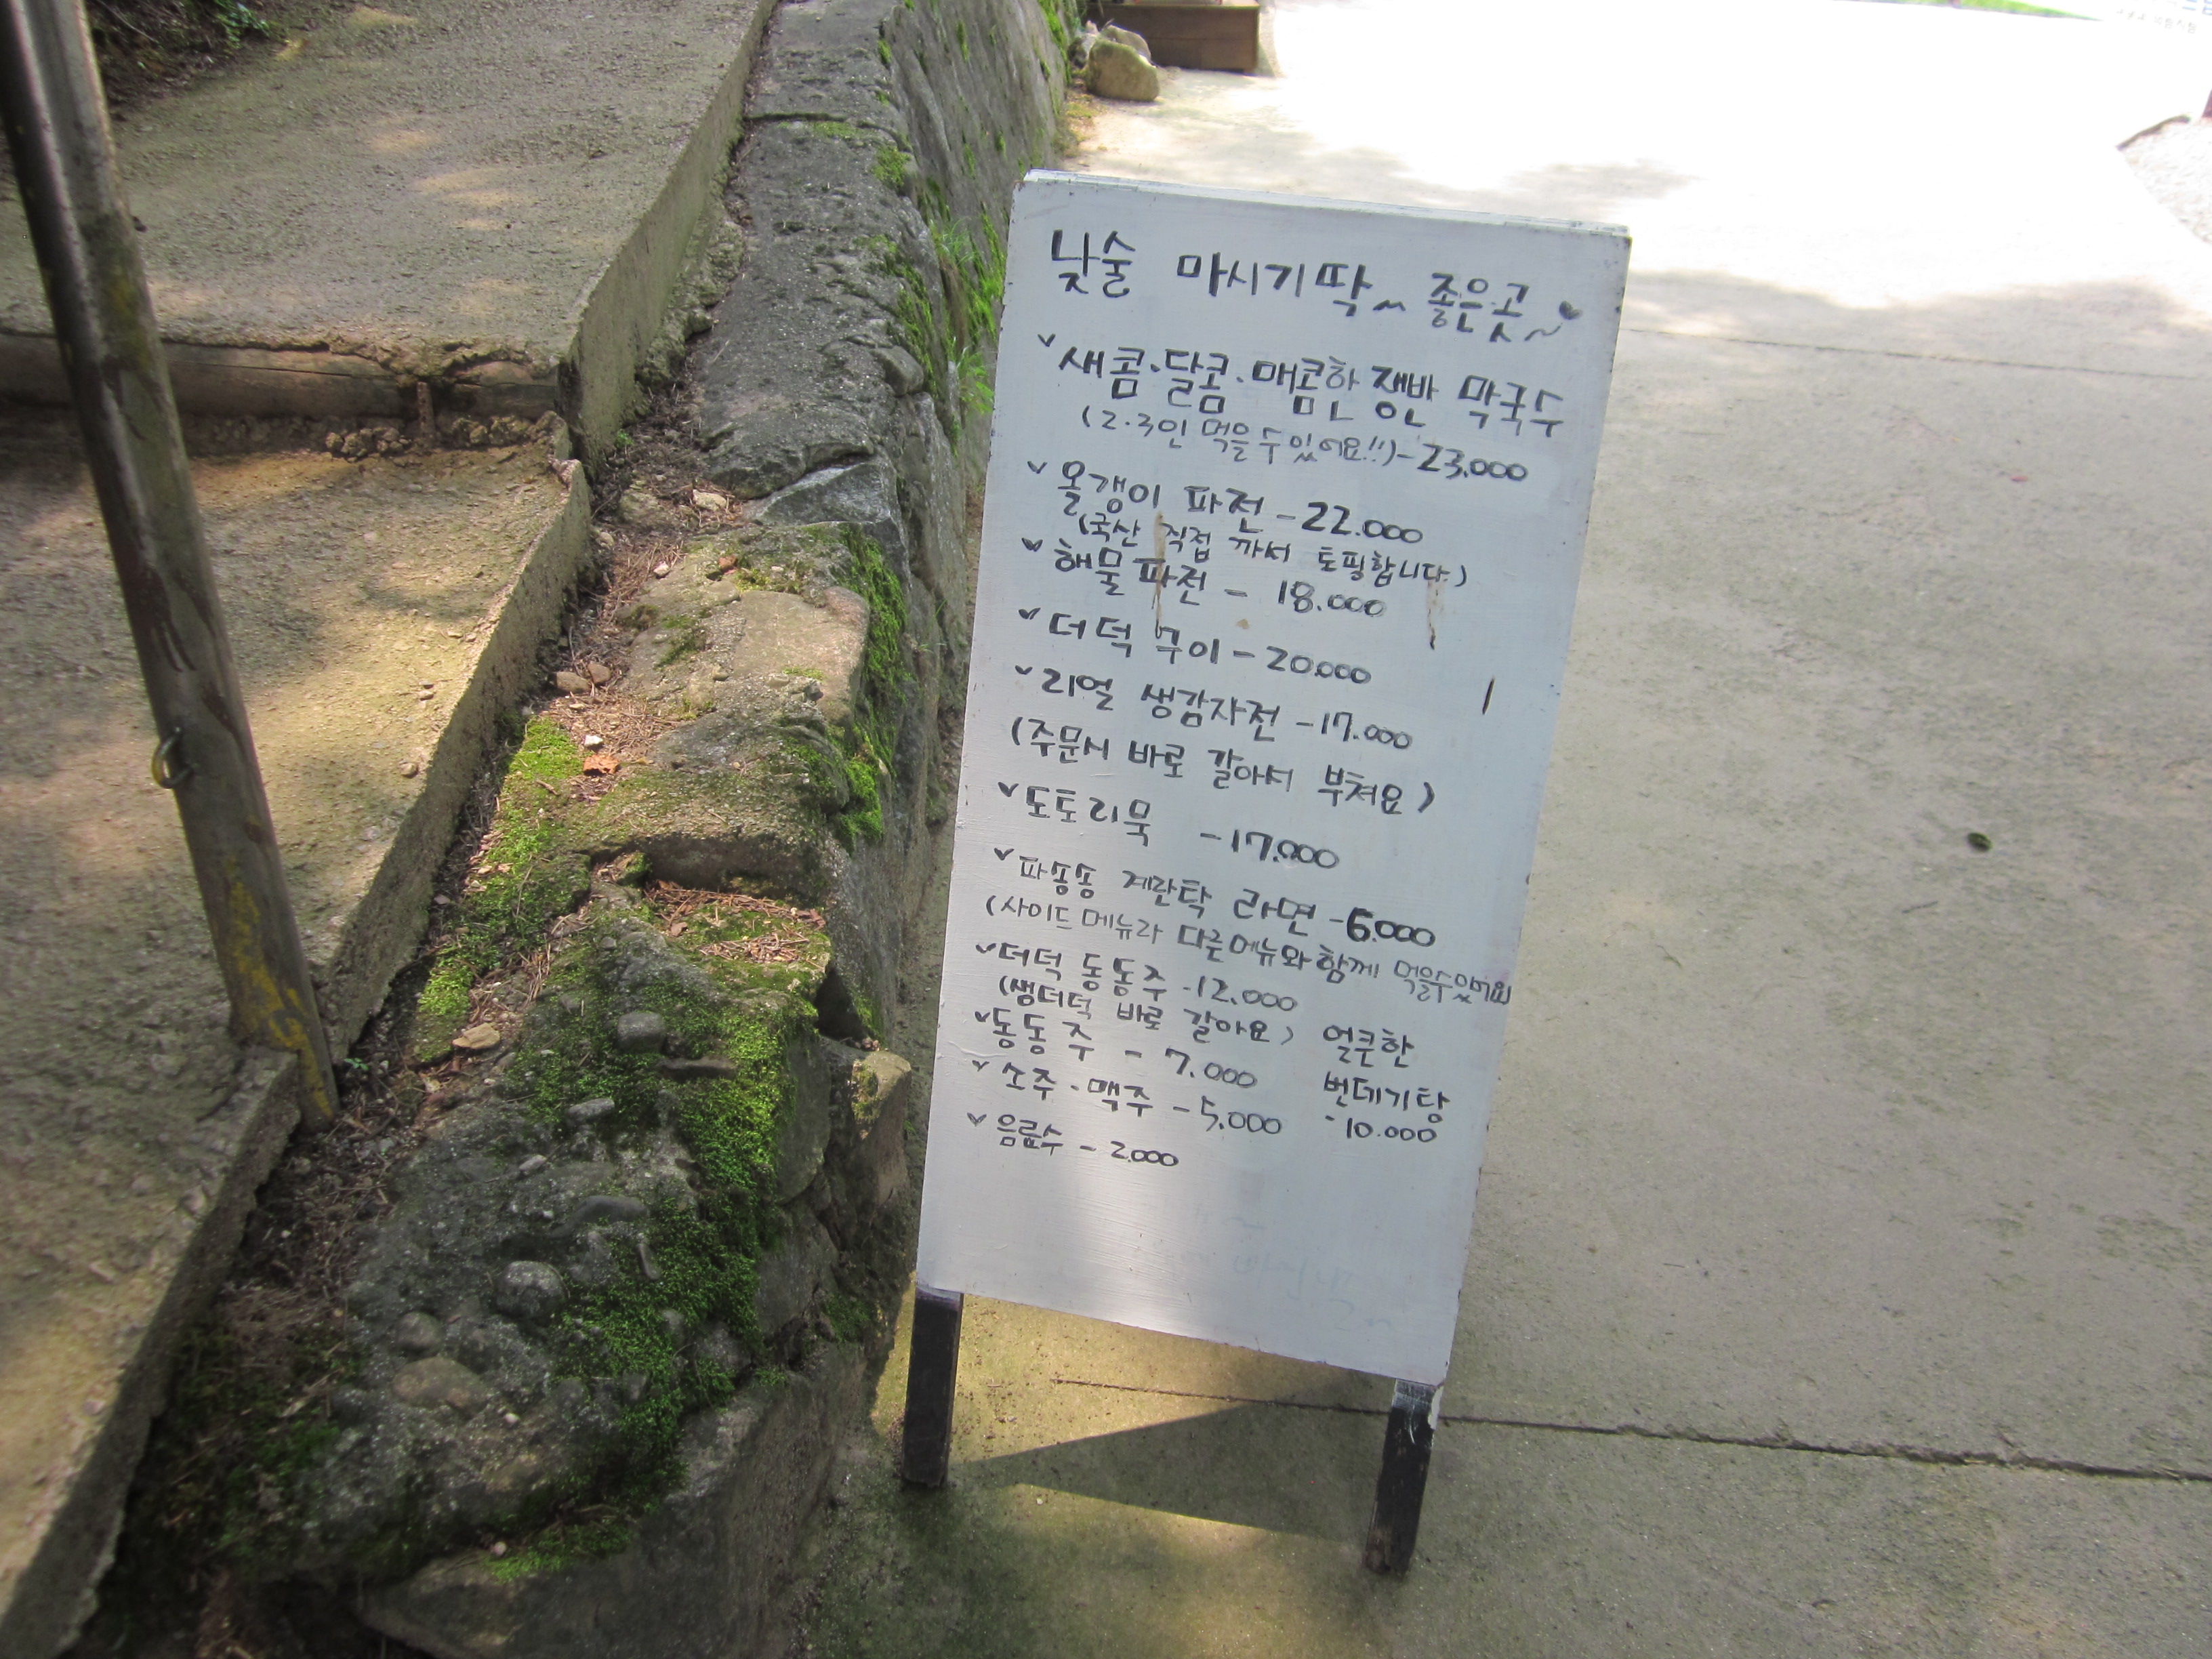 낮술 마시기딱~ 좋은곳~♥
새콤.달콤.매콤한 쟁반 막국수
(2.3인 먹을수있어요!!)-23.000
올갱이 파전-22.000
(국산 직접 까서 토핑합니다)
해물파전- 18.000
더덕구이-20.000
리얼 생감자전-17.000
(주문시 바로 갈아서 부쳐요)
도토리묵 -17.000
파송송 계란탁 라면-6.000
(사이드 메뉴라 다른메뉴와 함께 먹을수있어요)
더덕 동동주-12.000
(생더덕 바로 갈아요)
동동주 - 7.000
소주.맥주-5.000
음료수-2.000
얼큰한
번데기탕
-10.000